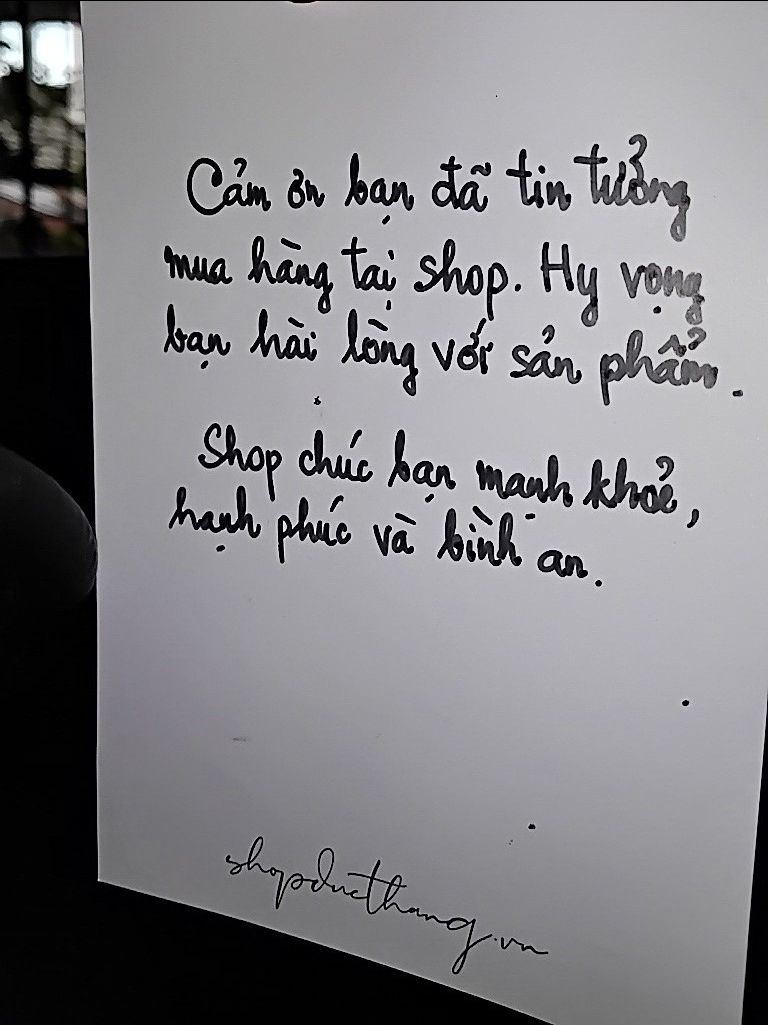 Cảm ơn bạn đã tin tưởng
mua hàng tại shop. Hy vọng
bạn hài lòng với sản phẩm.
Shop chúc bạn mạnh khỏe,
hạnh phúc và bình an.
shopducthang.vn